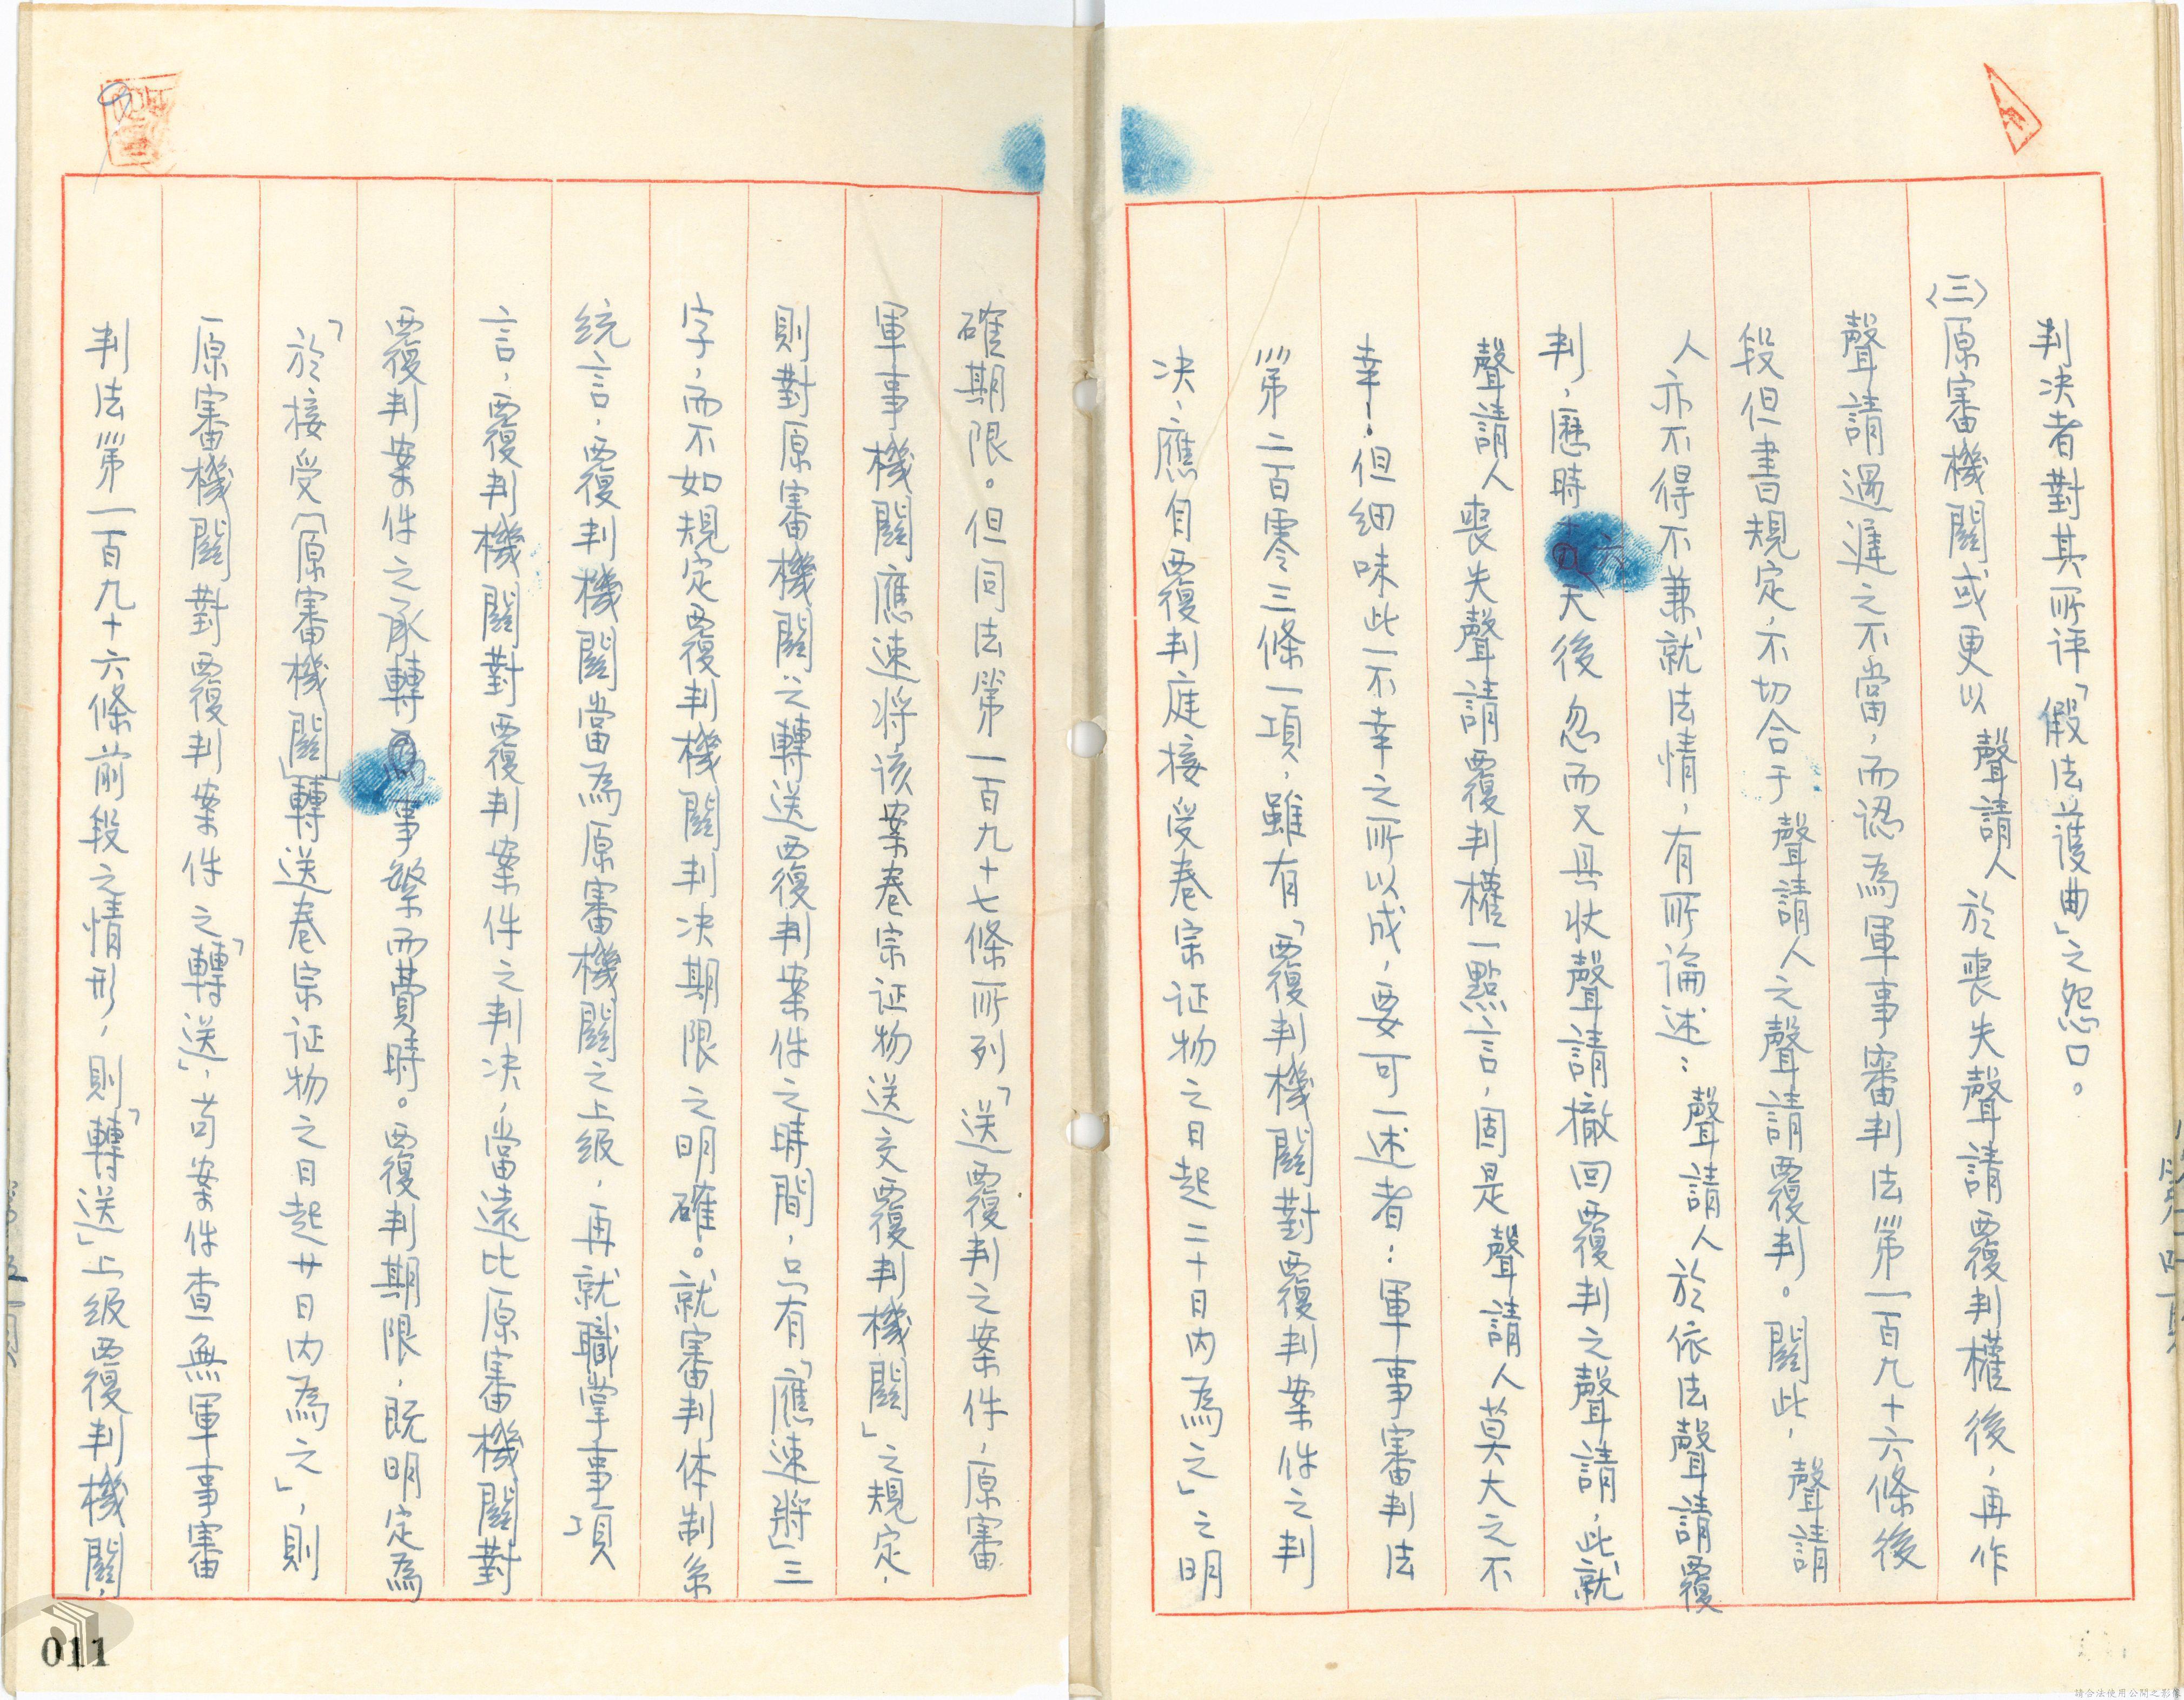 判決者對其所評「假法護曲」之怨口。
(三)原審機關或更以聲請人於喪失聲請覆判權後,再作
聲請過遲之不當,而認為軍事審判法第一百九十六條後
段但書規定,不切合于聲請人之聲請覆判。關此,聲請
人亦不得不兼就法情,有所論述:聲請人於依法聲請覆
判,歷時六天後忽而又具狀聲請撤回覆判之聲請,此就
聲請人喪失聲請覆判權一點言,固是聲請人莫大之不
幸!但細味此一不幸之所以成,要可一述者:軍事審判法
第二百零三條一項,雖有「覆判機關對覆判案件之判
決,應自覆判庭接受卷宗证物之日起二十日內為之」之明
確期限。但同法第一百九十七條所列「送覆判之案件,原審
軍事機關應速将该案卷宗证物送交覆判機關」之規定,
則對原審機關之轉送覆判案件之時間,只有「應速將」三
字,而不如規定覆判機關判决期限之明確。就審判体制系
統言,覆判機關當為原審機關之上級,再就職掌事項
言,覆判機關對覆判案件之判决,當遠比原審機關對
覆判案件之承轉事繁而費時。覆判期限,既明定為
「於接受(原審機關)轉送卷宗证物之日起廿日內為之」,則
原審機關對覆判案件之「轉送」,苟案件查無軍事審
判法第一百九十六條前段之情形,則「轉送」上級覆判機關,
011
請合法使用公開之影像